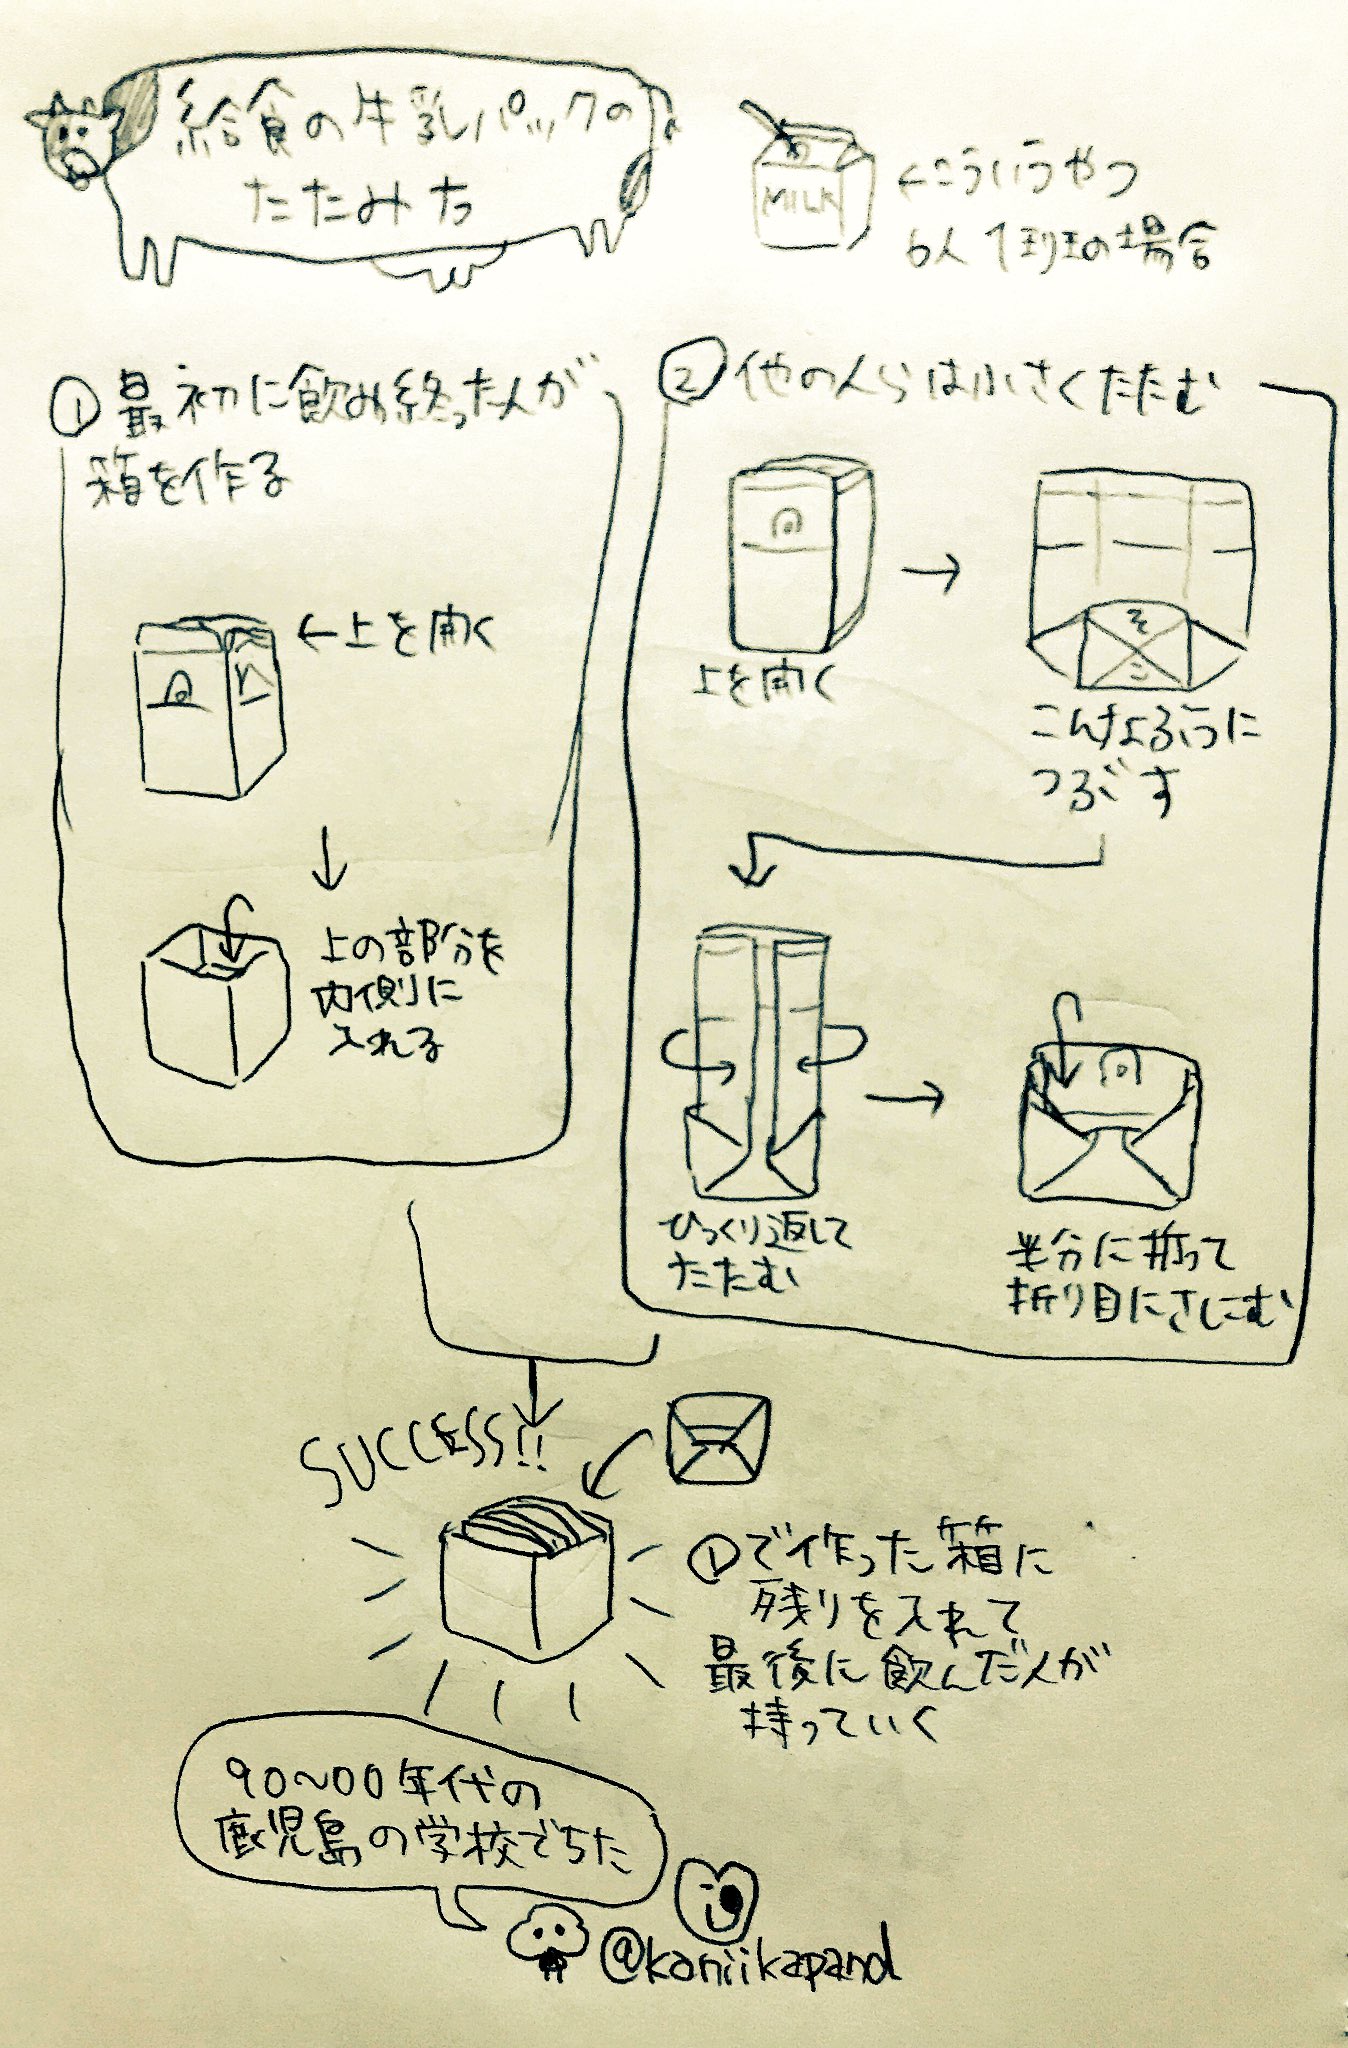 給食の牛乳パックの
たたみ方
MILK
←こういうやつ
6人1班の場合
① 最初に飲み終った人が
箱を作る
←上を開く
上の部分を
内側に
入れる
② 他の人らは小さくたたむ
上を開く
そ
こ
こんなふうに
つぶす
ひっくり返して
たたむ
半分に折って
折り目にさしこむ
SUCCESS!!
①で作った箱に
残りを入れて
最後に飲んだ人が
持っていく
90〜00年代の
鹿児島の学校でした
@kaniikapand